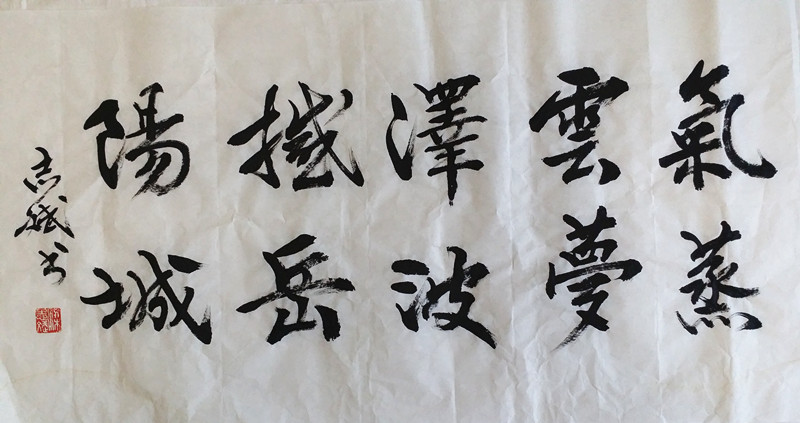 氣蒸
雲夢
澤波
撼岳
陽城
志 书